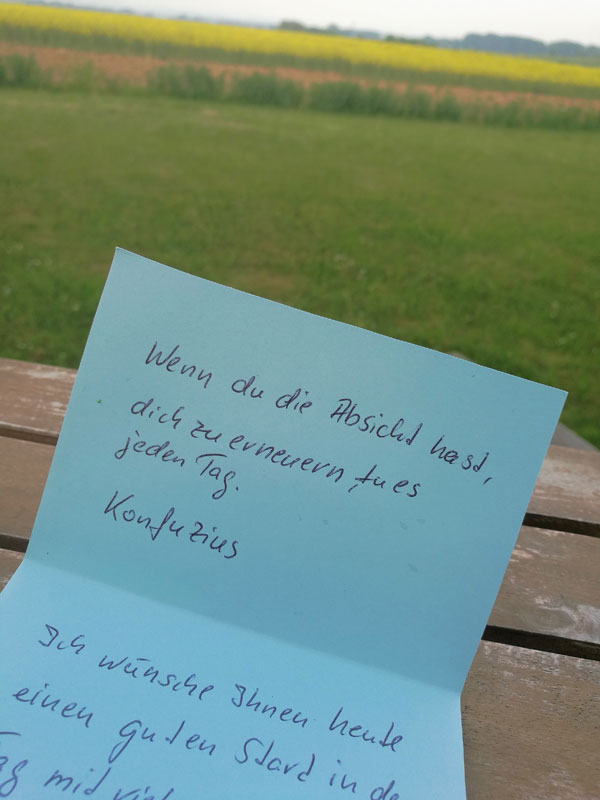 Wenn du die Absicht hast,
dich zu erneuern, tu es
jeden Tag.
Konfuzius
Ich wünsche Ihnen heute
einen guten Start in
Tag mit